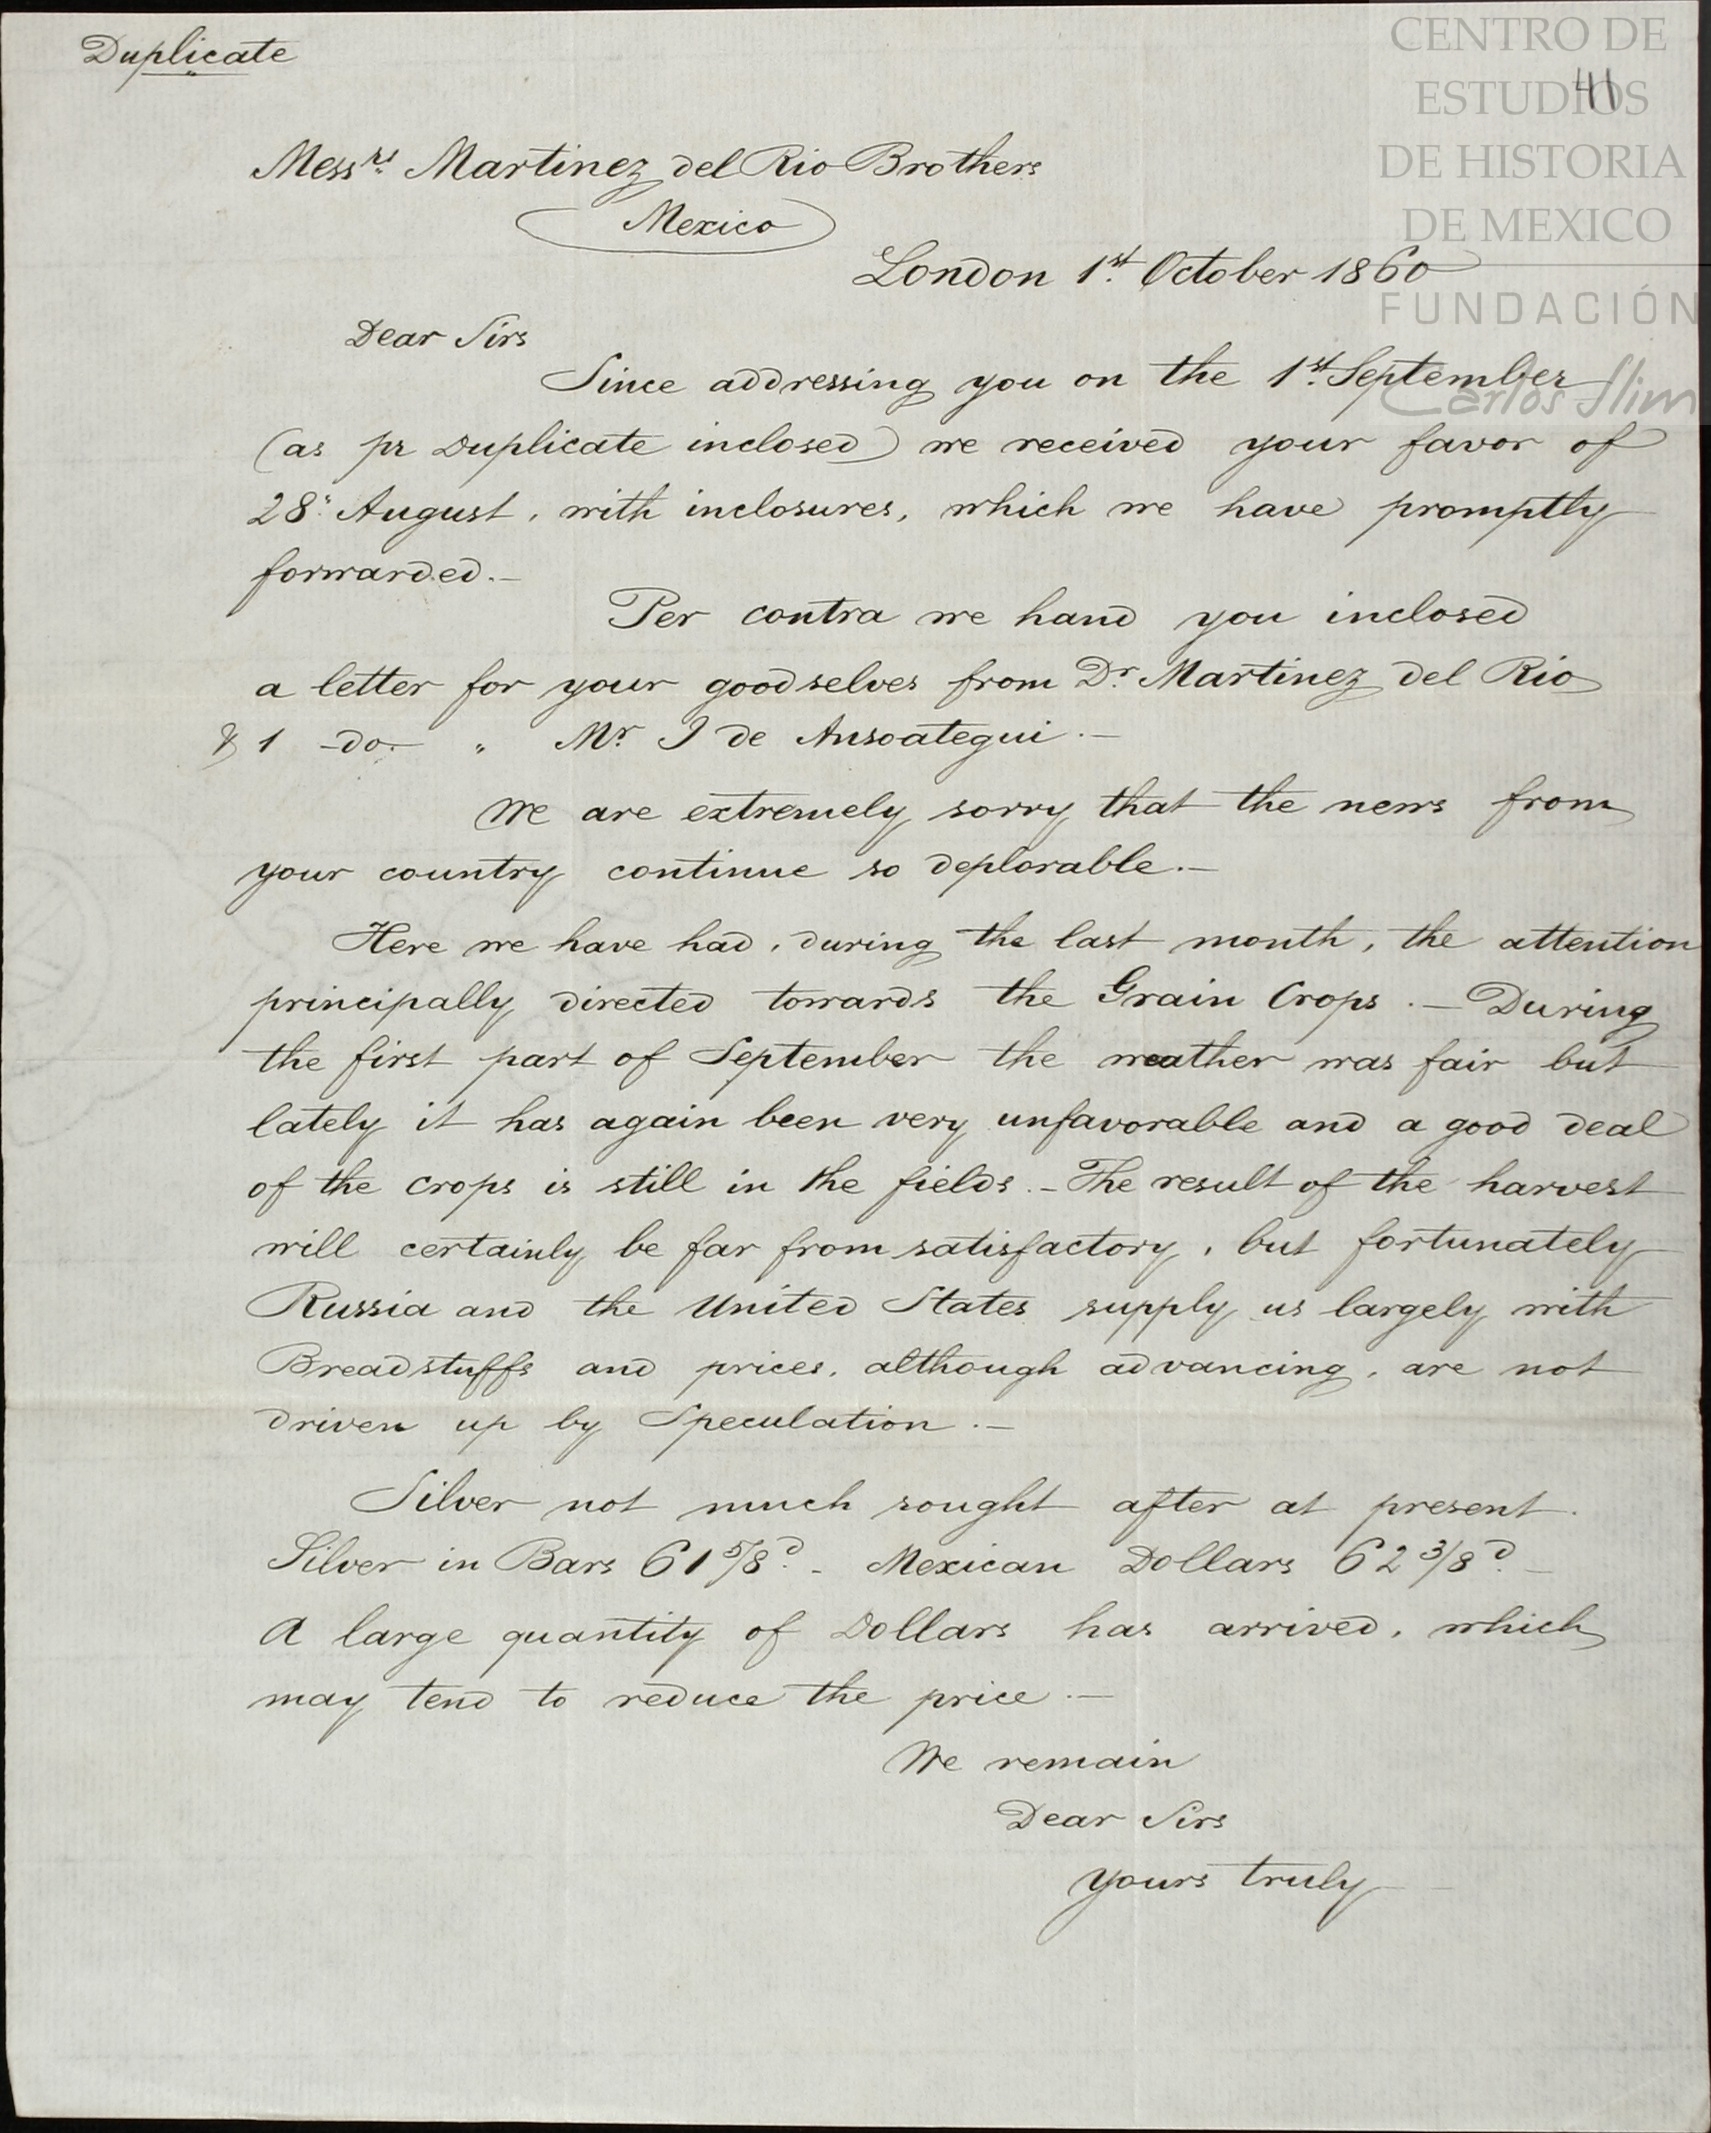 Duplicate
41
Mess.rs Martinez del Rio Brothers
Mexico
London 1st. October 1860
Dear Sirs
Since addressing you on the 1st. September
(as pr Duplicate inclosed) we received your favor of
28: August, with inclosures, which we have promptly
forwarded.-
Per contra we hand you inclosed
a letter for your goodselves from Dr. Martinez del Rio
& 1 -do- " Mr. I de Ansoategui.-
We are extremely sorry that the news from
your country continue so deplorable.-
Here we have had, during the last month, the attention
principally directed towards the Grain Crops.- During
the first part of September the weather was fair but
lately it has again been very unfavorable and a good deal
of the crops is still in the fields.- The result of the harvest
will certainly be far from satisfactory, but fortunately
Russia and the United States supply us largely with
Breadstuffs and prices, although advancing, are not
driven up by Speculation.-
Silver not much sought after at present.
Silver in Bars 61 5/8 d. - Mexican Dollars 62 3/8 d. -
A large quantity of Dollars has arrived, which
may tend to reduce the price.-
We remain
Dear Sirs
yours truly
CENTRO DE
ESTUDIOS
DE HISTORIA
DE MEXICO
FUNDACIÓN
Carlos Slim